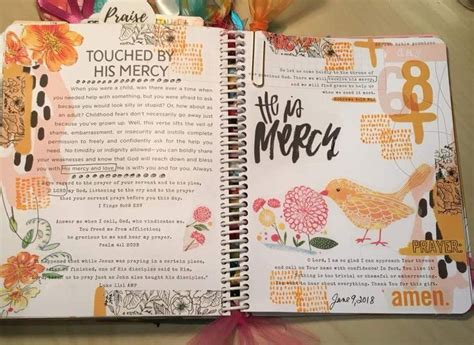 Praise
TOUCHED BY
HIS MERCY
When you were a child, was there ever a time when
you needed help with something, but you were afraid to ask
because you would look silly or stupid? Or, how about as
an adult? Childhood fears don't necessarily go away just
because you've grown up. Well, this verse lifts the veil
of shame, embarrassment, or insecurity and solicits complete
permission to freely and confidently ask for the help you
need. No timidity or indignity allowed—you can boldly share
your weaknesses and know that God will reach down and bless
you with his mercy and love. He is with you and for you. Always.
regard to the prayer of your servant and to his plea,
LORD my God, listening to the cry and to the prayer
that your servant prays before you this day.
I Kings
Answer me when I call, God, who vindicates me.
You freed me from affliction;
be gracious to me and hear my prayer.
Psalm 4:1
It happened that while Jesus was praying in a certain place,
he finished, one of His disciples said to Him,
teach us to pray just as John also taught his disciples."
Luke 11:1 AMP
let us come boldly to the throne of
receive his mercy,
and we will find grace to help
us when we need it most.
68
He is
MERCY
PRAYER:
O Lord, I am so glad I can approach Your throne
and call on Your name with confidence! In fact, You like it
thing is too trivial or shameful or embarrassing
You want to hear about everything. Thank You for everything.
amen.
June 9, 2018